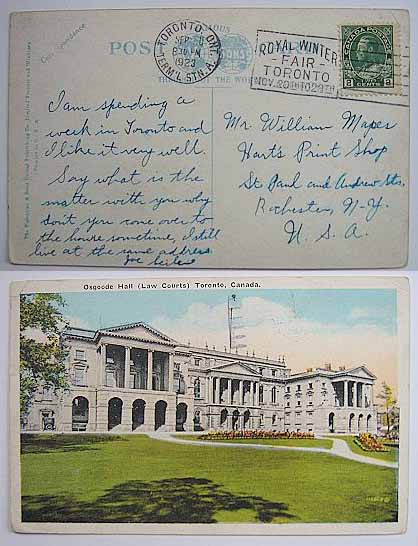 TORONTO, ONT.
SEP
8 PM
1923
TERM'L STN. A
ROYAL WINTER
- FAIR -
TORONTO
NOV. 20TH TO 28TH
CANADA POSTAGE
2 CENTS 2
POST
Correspondence
I am spending a
week in Toronto and
I like it very well.
Say what is the
matter with you why
don't you come over to
the house sometime, I still
live at the same address
Joe
Mr William Mapes
Harts Print Shop
St Paul and Andrew Sts,
Rochester, N-Y.
U. S. A.
Osgoode Hall (Law Courts) Toronto, Canada.